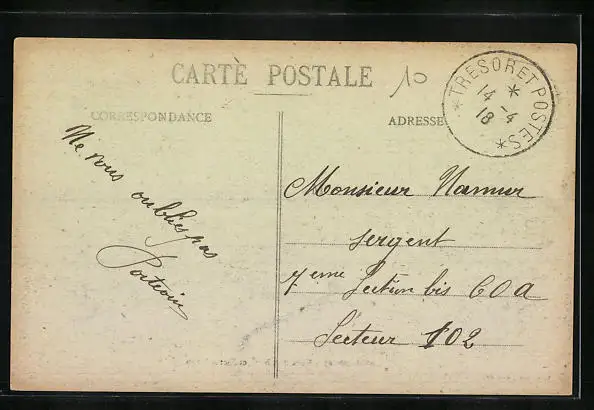 CARTE POSTALE
10
CORRESPONDANCE
ADRESSE
*TRESOR ET POSTES*
14 *
18 -4
Ne vous
oubliés pas
Monsieur Namur
sergent
7eme Section bis COA
Secteur 102